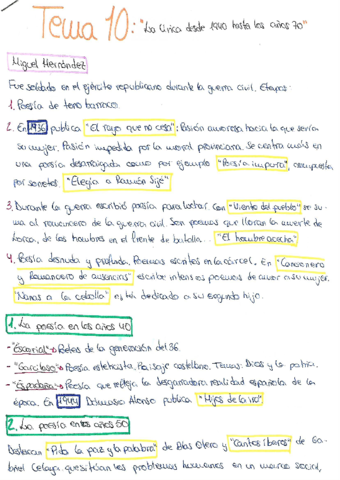 Tema 10: "La lírica desde 1940 hasta los años 70"
Miguel Hernández
Fue soldado en el ejército republicano durante la guerra civil. Etapas:
1. Poesía de tono barroco.
2. En 1936 publica "El rayo que no cesa": Pasión amorosa hacia la que sería
su mujer. Pasión impedida por la moral provinciana. Se centra más en
una poesía desarraigada como por ejemplo "Poesía impura", compuesta
por sonetos. "Elegía a Ramón Sijé"
3. Durante la guerra escribió poesía para luchar. Con "Viento del pueblo" se su-
ma al romancero de la guerra civil. Son poemas que lloran la muerte de
Lorca, de los hombres en el frente de batalla... "El hombre acecha"
4. Poesía desnuda y profunda. Poemas escritos en la cárcel. En "Cancionero
y Romancero de ausencias" escribe intensos poemas de amor a su mujer.
"Nanas a la cebolla" está dedicado a su segundo hijo.
1. La poesía en los años 40
- "Escorial": Poetas de la generación del 36.
- "Garcilaso": Poesía esteticista. Paisaje castellano. Temas: Dios y la patria.
- "Espadaña": Poesía que refleja la desgarradora realidad española de la
época. En 1944 Dámaso Alonso publica "Hijos de la ira"
2. La poesía en los años 50
Destacan "Pido la paz y la palabra" de Blas Otero y "Cantos íberos" de Ga-
briel Celaya que sitúan los problemas humanos en un marco social,